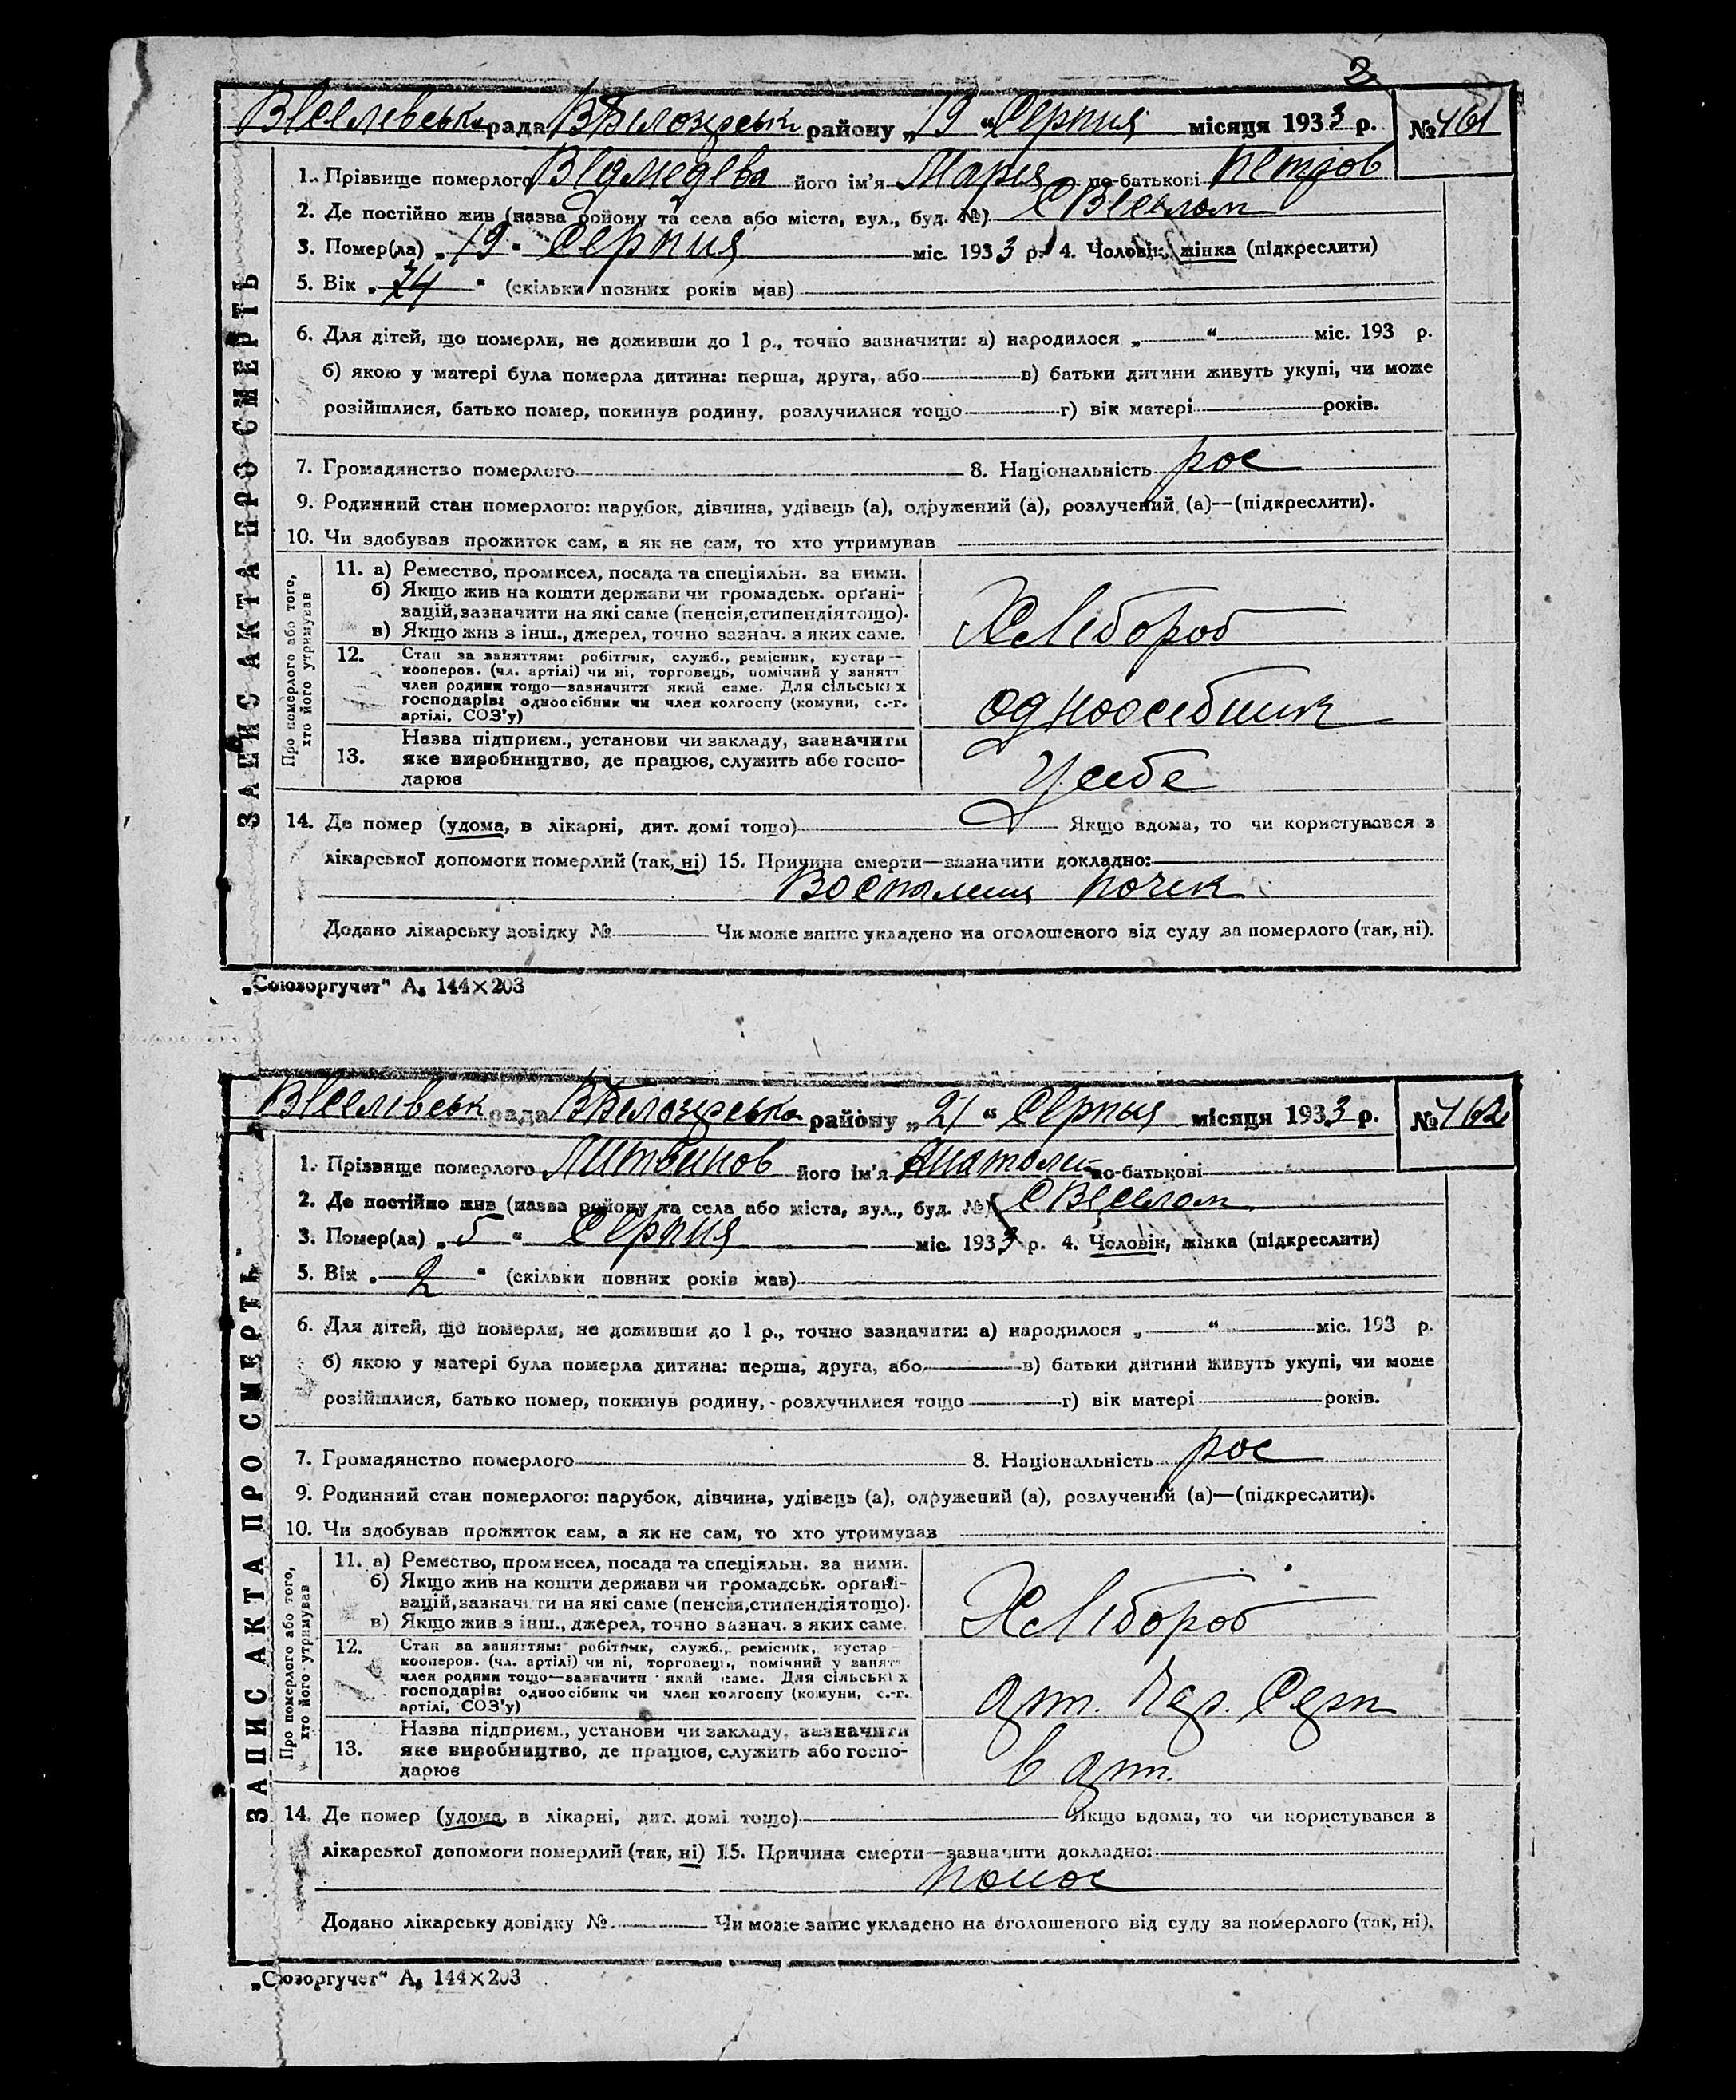 2
Веселевськ рада В Білозірськ району „19“ Серпня місяця 1933 р. № 461
ЗАПИС АКТА ПРО СМЕРТЬ
1. Прізвище померлого Ведмедева його ім'я Мария по-батькові Петров
2. Де постійно жив (назва району та села або міста, вул., буд. №) С Веселом
3. Помер(ла) „19“ Серпня міс. 1933 р. 4. Чоловік, жінка (підкреслити)
5. Вік „74“ (скільки повних років мав)
6. Для дітей, що померли, не доживши до 1 р., точно зазначити: а) народилося „ “ міс. 193 р.
б) якою у матері була померла дитина: перша, друга, або в) батьки дитини живуть укупі, чи може
розійшлися, батько помер, покинув родину, розлучилися тощо г) вік матері років.
7. Громадянство померлого 8. Національність рос
9. Родинний стан померлого: парубок, дівчина, удівець (а), одружений (а), розлучений (а)—(підкреслити).
10. Чи здобував прожиток сам, а як не сам, то хто утримував
Про померлого або того,
хто його утримував
11. а) Ремество, промисел, посада та спеціяльн. за ними.
б) Якщо жив на кошти держави чи громадськ. органі-
зацій, зазначити на які саме (пенсія, стипендія тощо).
в) Якщо жив з інш., джерел, точно зазнач. з яких саме.
Хлібороб
12. Стан за заняттям: робітник, служб., ремісник, кустар—
кооперов. (чл. артілі) чи ні, торговець, помічний у занятт
член родини тощо—зазначити який саме. Для сільських
господарів: одноосібник чи член колгоспу (комуни, с.-г.
артілі, СОЗ'у)
одноосебник
13. Назва підприєм., установи чи закладу, зазначити
яке виробництво, де працює, служить або госпо-
дарює
У себе
14. Де помер (удома, в лікарні, дит. домі тощо) Якщо вдома, то чи користувався з
лікарської допомоги померлий (так, ні) 15. Причина смерти—зазначити докладно:
Воспаления почек
Додано лікарську довідку № Чи може запис укладено на оголошеного від суду за померлого (так, ні).
„Союзоргучет“ А5 144×203
Веселевськ рада В Білозірська району „21“ Серпня місяця 1933 р. № 462
ЗАПИС АКТА ПРО СМЕРТЬ
1. Прізвище померлого Литвинов його ім'я Анатолий по-батькові
2. Де постійно жив (назва району та села або міста, вул., буд. №) С Веселом
3. Помер(ла) „5“ Серпня міс. 1933 р. 4. Чоловік, жінка (підкреслити)
5. Вік „2“ (скільки повних років мав)
6. Для дітей, що померли, не доживши до 1 р., точно зазначити: а) народилося „ “ міс. 193 р.
б) якою у матері була померла дитина: перша, друга, або в) батьки дитини живуть укупі, чи може
розійшлися, батько помер, покинув родину, розлучилися тощо г) вік матері років.
7. Громадянство померлого 8. Національність рос
9. Родинний стан померлого: парубок, дівчина, удівець (а), одружений (а), розлучений (а)—(підкреслити).
10. Чи здобував прожиток сам, а як не сам, то хто утримував
Про померлого або того,
хто його утримував
11. а) Ремество, промисел, посада та спеціяльн. за ними.
б) Якщо жив на кошти держави чи громадськ. органі-
зацій, зазначити на які саме (пенсія, стипендія тощо).
в) Якщо жив з інш., джерел, точно зазнач. з яких саме.
Хлібороб
12. Стан за заняттям: робітник, служб., ремісник, кустар—
кооперов. (чл. артілі) чи ні, торговець, помічний у занятт
член родини тощо—зазначити який саме. Для сільських
господарів: одноосібник чи член колгоспу (комуни, с.-г.
артілі, СОЗ'у)
арт.
13. Назва підприєм., установи чи закладу, зазначити
яке виробництво, де працює, служить або госпо-
дарює
в арт.
14. Де помер (удома, в лікарні, дит. домі тощо) Якщо вдома, то чи користувався з
лікарської допомоги померлий (так, ні) 15. Причина смерти—зазначити докладно:
понос
Додано лікарську довідку № Чи може запис укладено на оголошеного від суду за померлого (так, ні).
„Союзоргучет“ А5 144×203